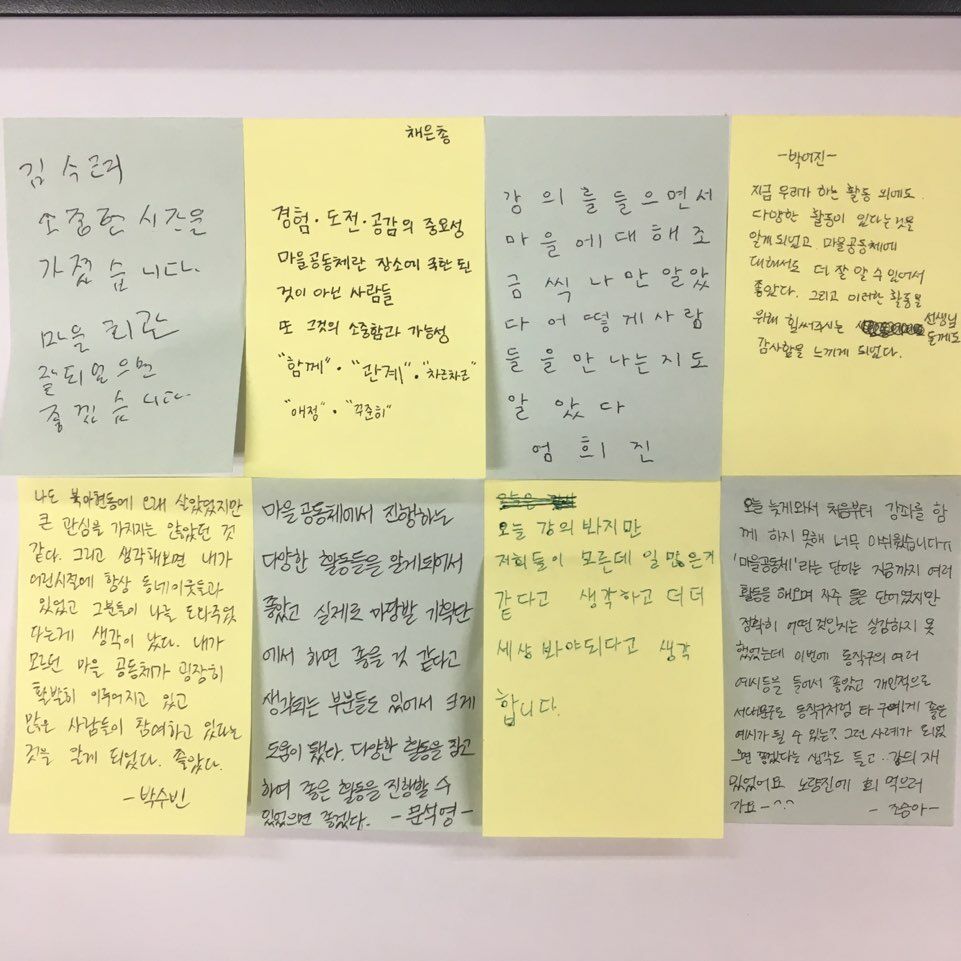 김숙
소중한 시간을
가졌습니다.
마을
잘되었으면
좋겠습니다
채은총
경험·도전·공감의 중요성
마을공동체란 장소에 국한된
것이 아닌 사람들
또 그것의 소중함과 가능성
"함께"·"관계"·"차근차근"
"애정"·"꾸준히"
강의를들으면서
마을에대해조
금씩나만알았
다어떻게사람
들을만나는지도
알았다
엄희진
-박어진-
지금 우리가 하는 활동 외에도.
다양한 활동이 있다는것을
알게 되었고 마을공동체에
대해서도 더 잘 알 수 있어서
좋았다. 그리고 이러한 활동을
위해 힘써주시는 선생님
들께도
감사함을 느끼게 되었다.
나도 북아현동에 오래 살았었지만
큰 관심을 가지지는 않았던 것
같다. 그리고 생각해보면 내가
어린시절에 항상 동네이웃들과
있었고 그분들이 나를 도와주었
다는게 생각이 났다. 내가
모르던 마을 공동체가 굉장히
활발히 이루어지고 있고
많은 사람들이 참여하고 있다는
것을 알게 되었다. 좋았다.
-박수빈
마을공동체에서 진행하는
다양한 활동들을 알게되어서
좋았고 실제로 마당발 기획단
에서 하면 좋을 것 같다고
생각되는 부분들도 있어서 크게
도움이 됐다. 다양한 활동을 접
하여 좋은 활동을 진행할 수
있었으면 좋겠다. -문석영-
오늘 강의 봐지만
저희들이 모른데 일 많은거
같다고 생각하고 더더
세상 봐야되다고 생각
합니다.
오늘 늦게와서 처음부터 강좌를 함
께 하지 못해 너무 아쉬웠습니다ㅠ
'마을공동체'라는 단어는 지금까지 여러
활동을 해오며 자주 들은 단어였지만
정확히 어떤 것인지는 실감하지 못
했었는데 이번에 동작구의 여러
예시들을 들어서 좋았고 개인적으로
서대문구도 동작구처럼 타 구에게 좋은
예시가 될 수 있는? 그런 사례가 되었
으면 좋겠다는 생각도 들고.. 강의 재
밌었어요 노량진에 회 먹으러
가요~^^
-조승아-